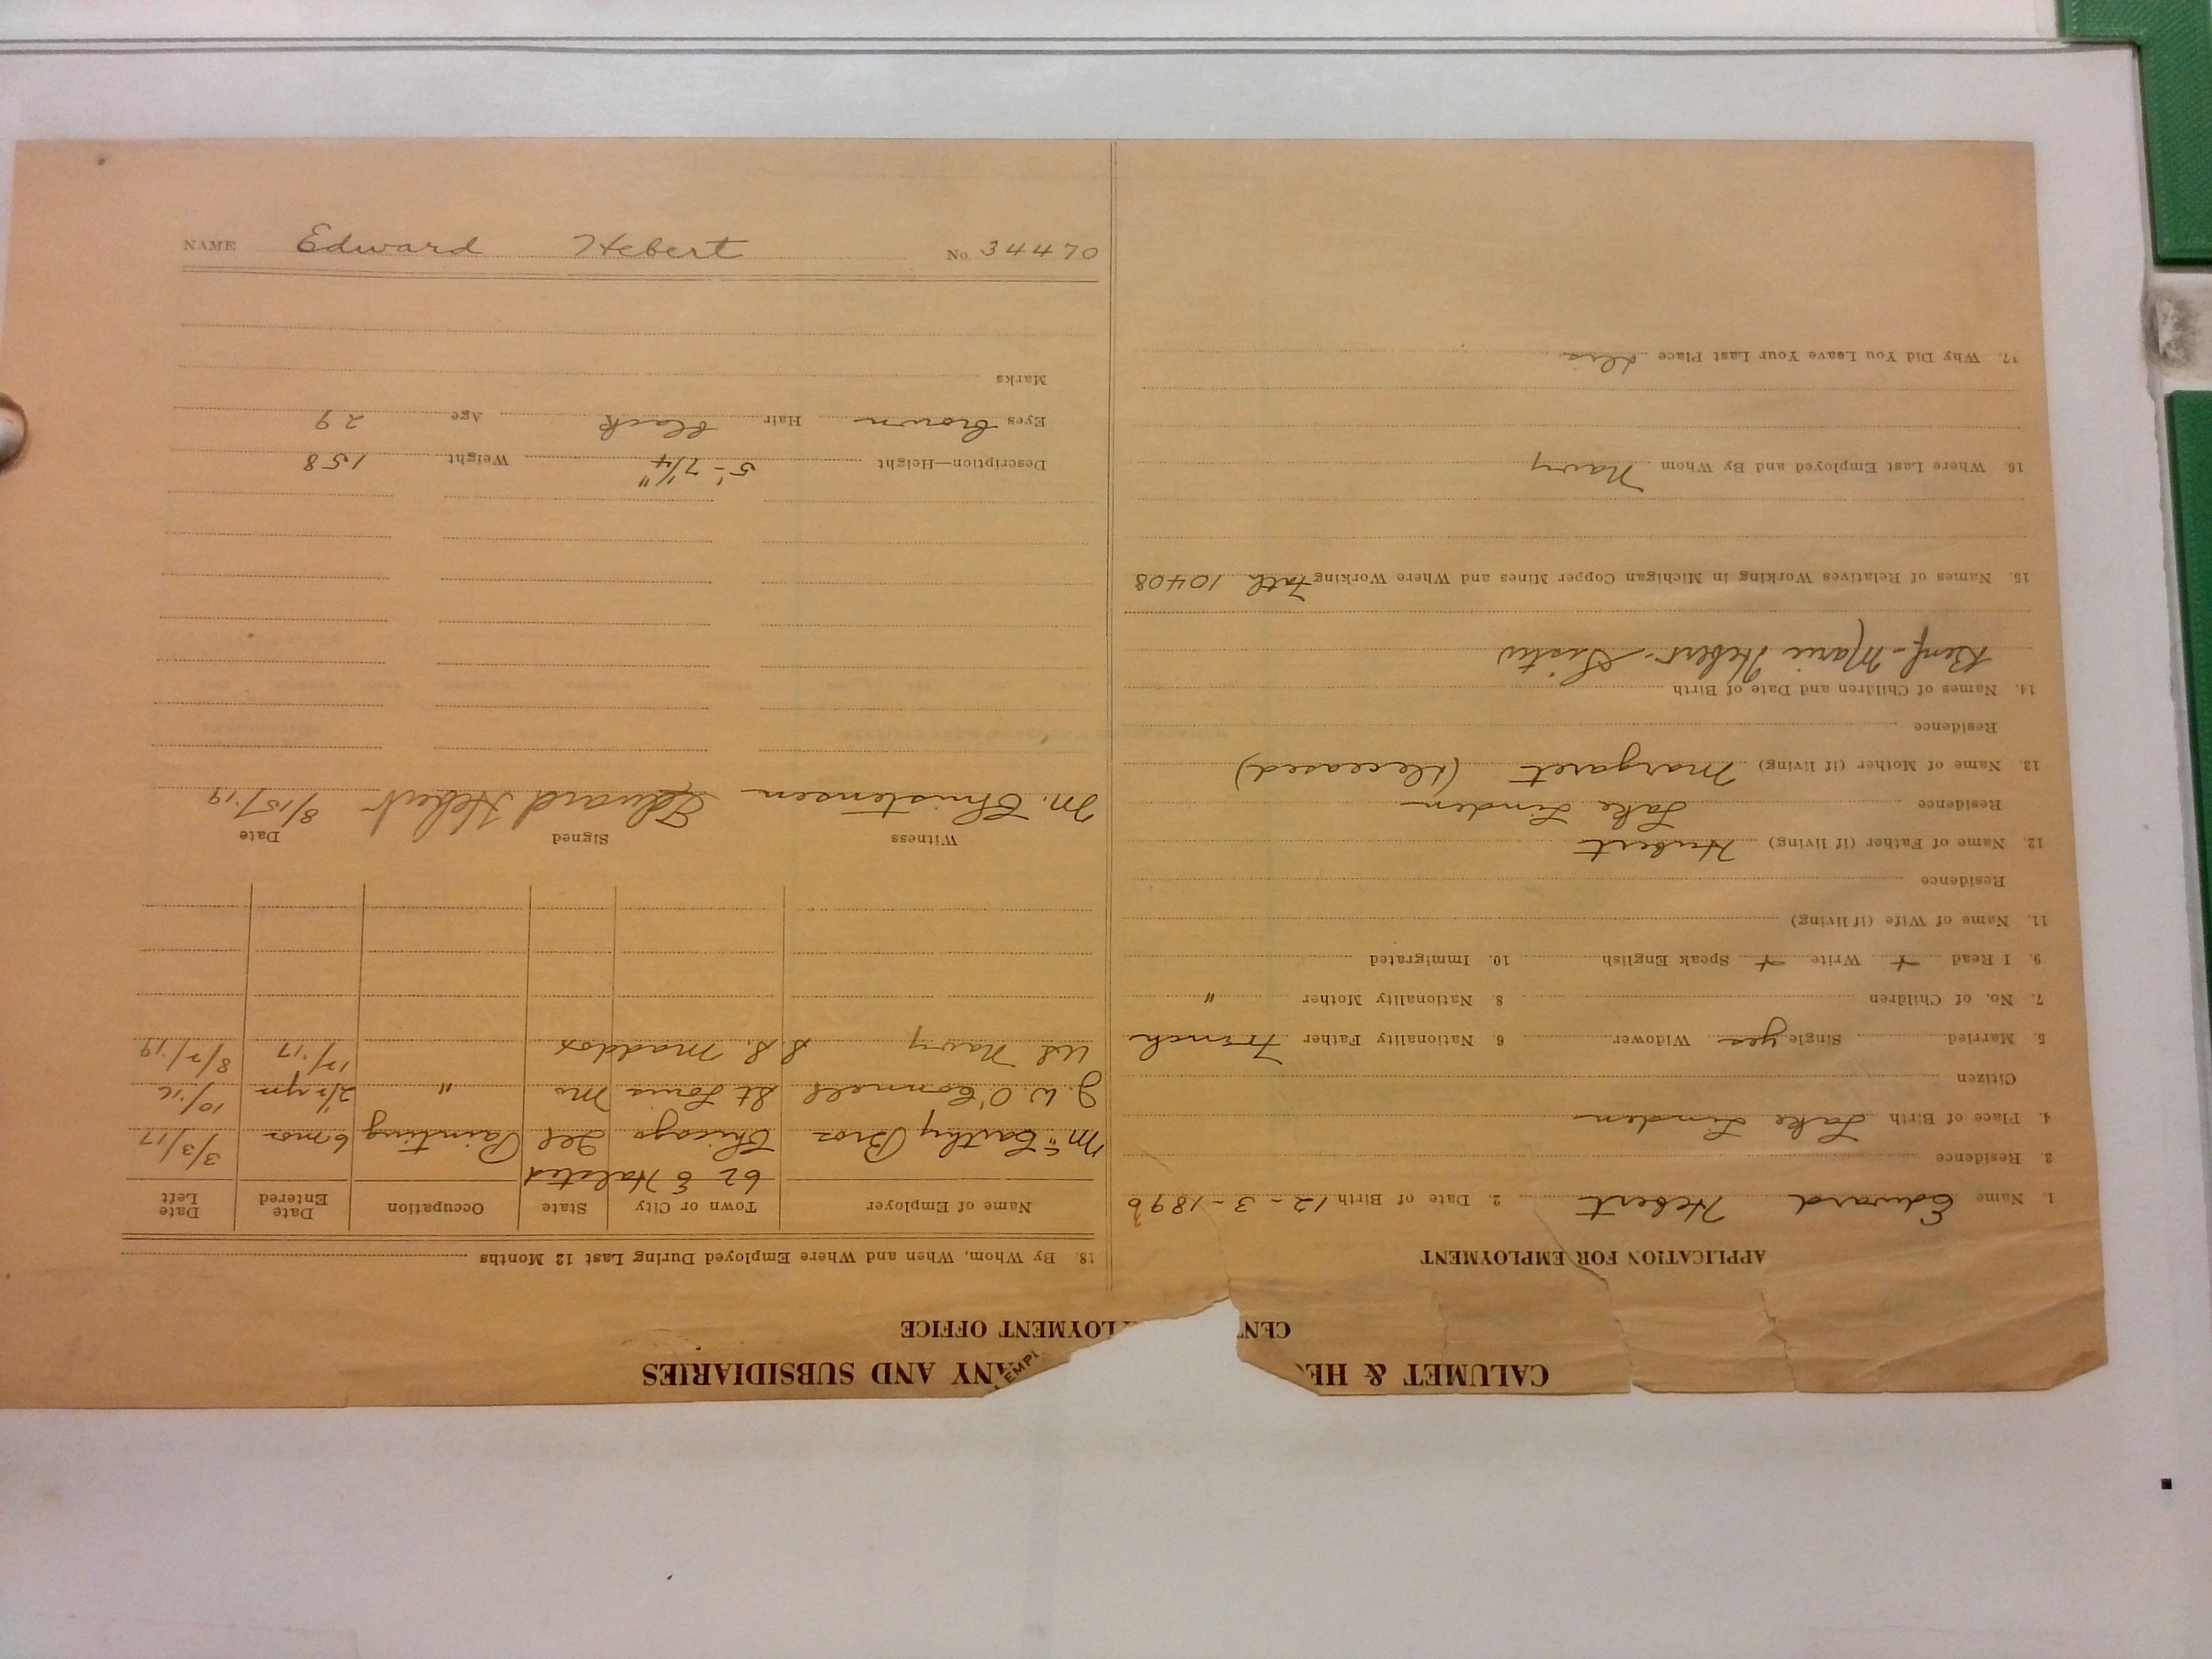 CALUMET & HEC ANY AND SUBSIDIARIES
EMPL
CENT LOYMENT OFFICE
APPLICATION FOR EMPLOYMENT
1. Name Edward Hebert 2. Date of Birth 12-3-1896
3. Residence
4. Place of Birth Lake Linden
Citizen
5. Married Single yes Widower 6. Nationality Father French
7. No. of Children 8. Nationality Mother "
9. I Read + Write + Speak English 10. Immigrated
11. Name of Wife (if living)
Residence
12. Name of Father (if living) Hubert
Residence Lake Linden
13. Name of Mother (if living) Margaret (deceased)
Residence
14. Names of Children and Date of Birth
Benf-Marie Hebert-Sister
15. Names of Relatives Working in Michigan Copper Mines and Where Working Fath 10408
16. Where Last Employed and By Whom Navy
17. Why Did You Leave Your Last Place dis
18. By Whom, When and Where Employed During Last 12 Months
Name of Employer Town or City State Occupation Date Entered Date Left
62 E Halsted
McCarthy Bros Chicago Ill Painting 6 mos 3/3/17
J. W. O'Connell St Louis Mo " 2 1/2 yrs 10/16
US Navy S.S. Maddox 12/17 8/2/19
Witness Signed Date
M. Christensen Edward Hebert 8/15/19
Description—Height 5'-7 1/4" Weight 158
Eyes brown Hair black Age 29
Marks
NAME Edward Hebert No 34470